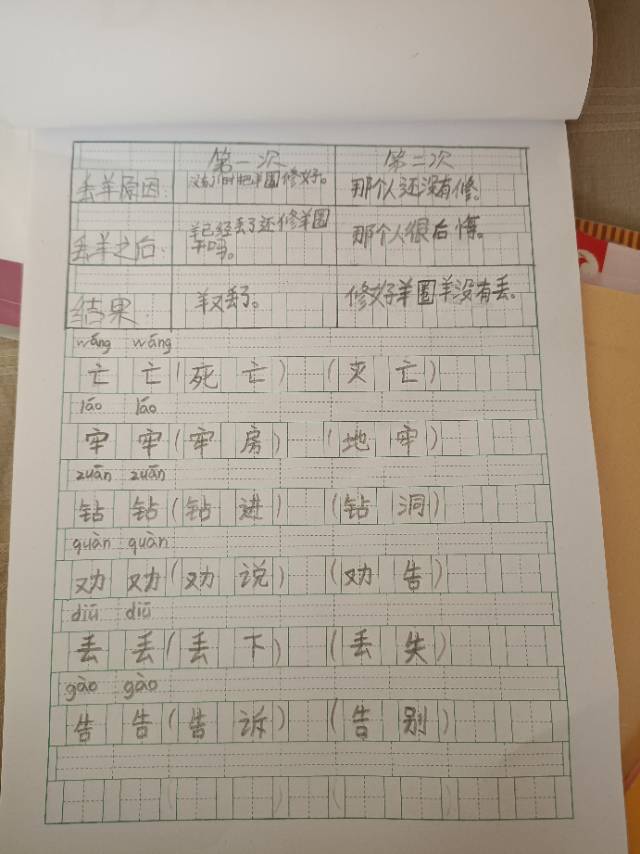 第一次 第二次
丢羊原因: 没有及时把羊圈修好。 那个人还没有修。
丢羊之后: 羊已经丢了还修羊圈干吗。 那个人很后悔。
结果: 羊又丢了。 修好羊圈羊没有丢。
wáng wáng
亡 亡(死 亡) (灭 亡)
láo láo
牢 牢(牢 房) (地 牢)
zuān zuān
钻 钻(钻 进) (钻 洞)
quàn quàn
劝 劝(劝 说) (劝 告)
diū diū
丢 丢(丢 下) (丢 失)
gào gào
告 告(告 诉) (告 别)